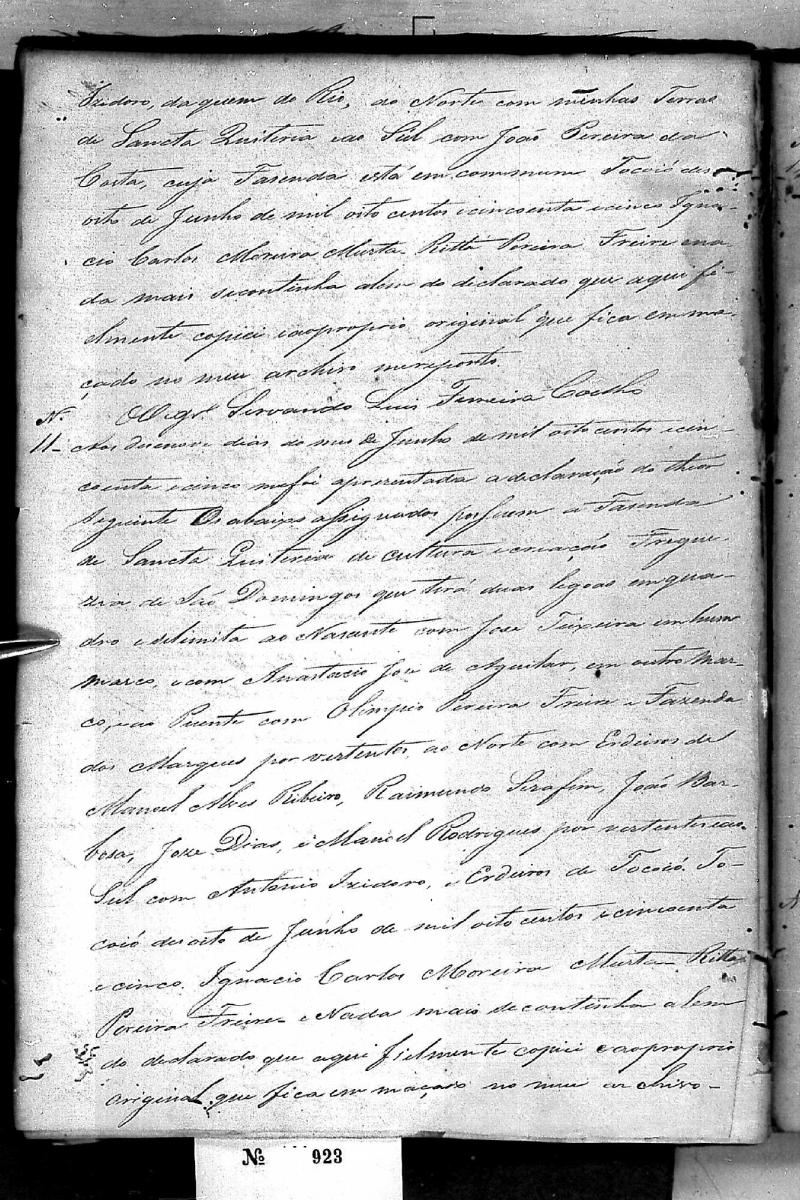 Izidoro, da quem do Rio, ao Norte com minhas Terras
de Sancta Quiteria e ao Sul com João Pereira da
Costa, cuja Fasenda está em commum Tocoió des
oito de Junho de mil oito centos e cincoenta e cinco Igna-
cio Carlos Moreira Murta. Ritta Pereira Freire e na
da mais se continha alem do declarado que aqui fi-
elmente copiei e ao proprio original que fica em ma-
çado no meu archivo me reporto.
O Vigr.º Servando Luis Ferreira Coelho
N.
11- Aos desenove dias do mes de Junho de mil oito centos e cin-
coenta e cinco me foi apresentada a declaração do theor
seguinte Os abaixo assignados possuem a Fasenda
de Sancta Quiteria de cultura e criação Fregue-
zia de São Domingos que terá duas legoas em qua-
dro e delimita ao Nascente com Joze Teixeira em hum
marco, e com Anastacio Joze de Aguilar, em outro mar-
co, e ao Poente com Olimpio Pereira Freire e Fazenda
dos Marques por vertentes, ao Norte com Erdeiros de
Manoel Alves Ribeiro, Raimundo Serafim, João Bar-
boza, Joze Dias, e Manoel Rodrigues por vertentes e ao
Sul com Antonio Izidoro, e Erdeiros de Tocoió. To-
coió desoito de Junho de mil oito centos e cincoenta
e cinco. Ignacio Carlos Moreira Murta. Ritta
Pereira Freire e Nada mais se continha alem
do declarado que aqui fielmente copiei e ao proprio
original que fica em maçado no meu archivo-
Nº 923